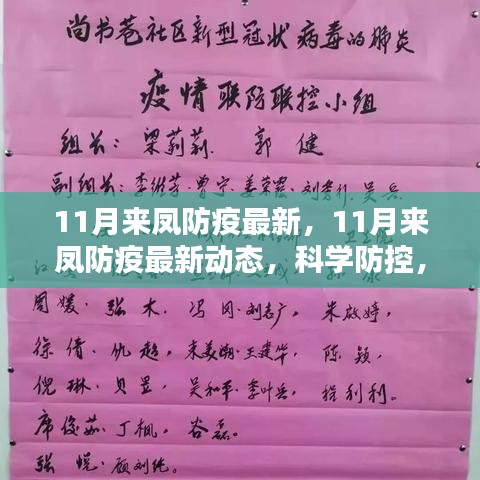 尚书苍社区新型冠状病毒的肺炎
疫情联防联控小组
组长：梁莉莉 郭健
副组长：李维芳·曾宁·姜荣霞·刘孝仆·吴兵
11月来凤防疫最新，11月来
凤防疫最新动态，科学防控，
周媛·张木·冯冈·刘志广·朱啟婷，
徐倩·仇超，来美湖·王建华，陈颖，
倪琳·贝昱，吴和平·李叶兵，程利利。
席俊茹·丁枫，谷磊。
张悦·顾刘纯。